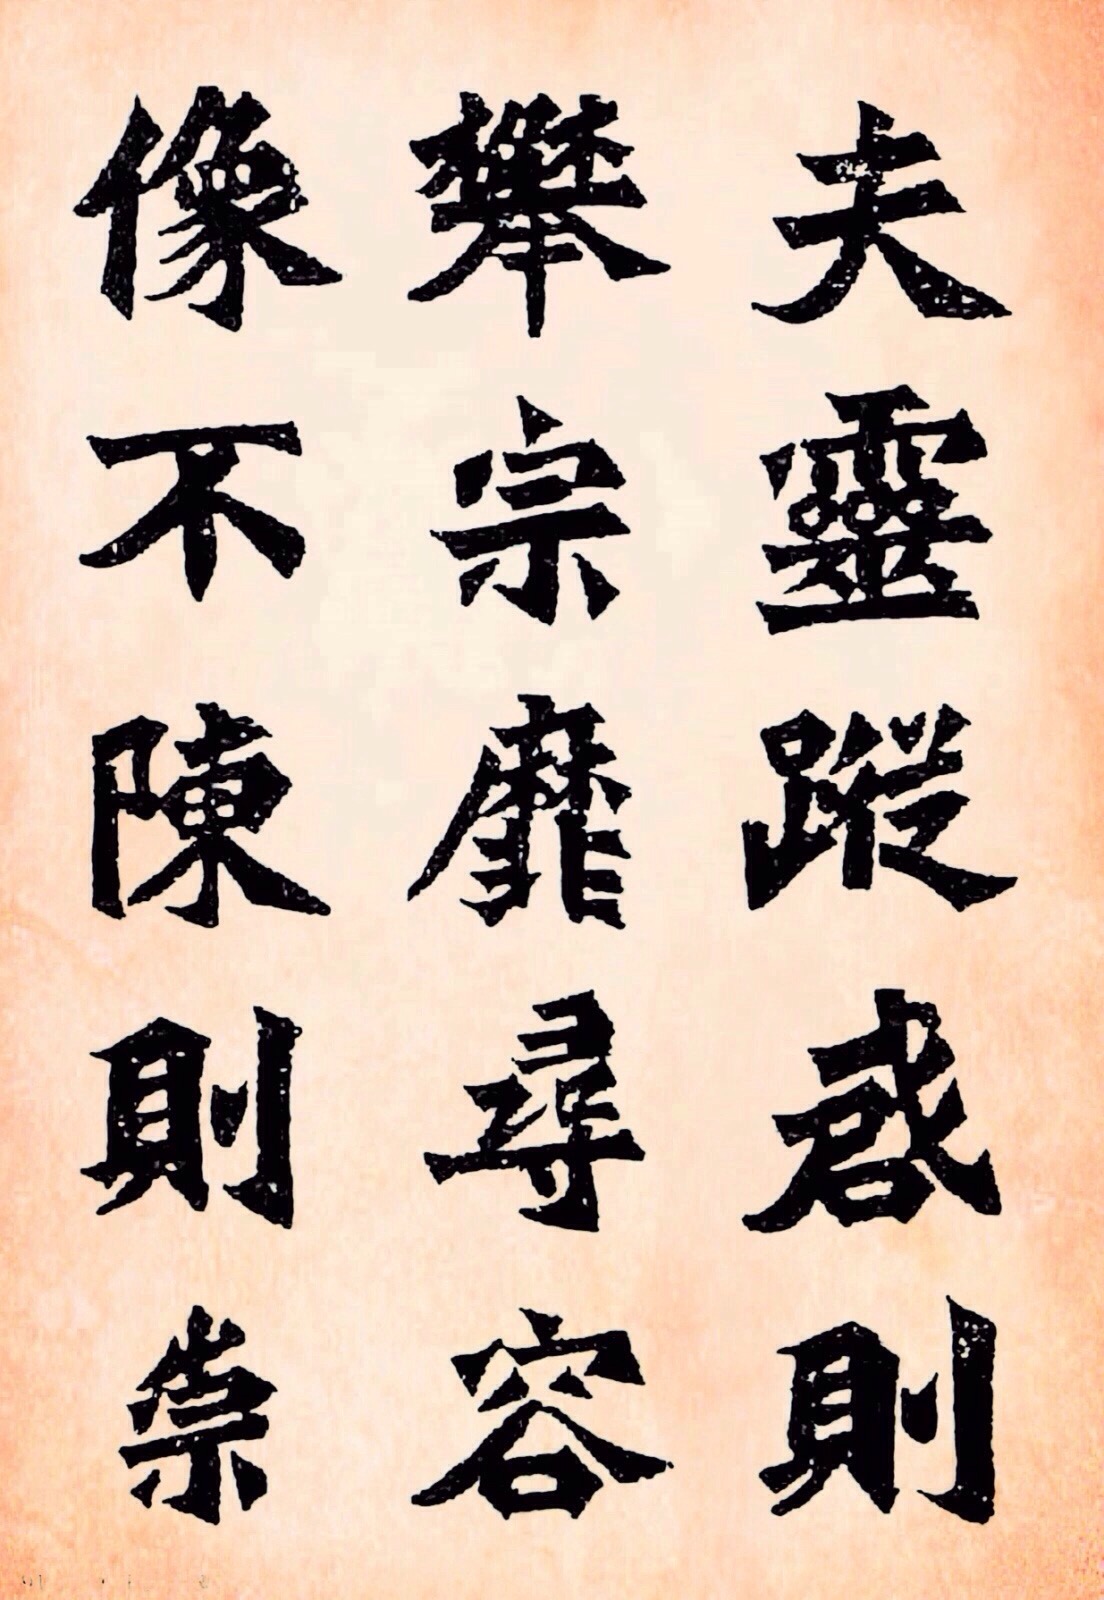 夫靈蹤啓則
攀宗靡尋容
像不陳則崇